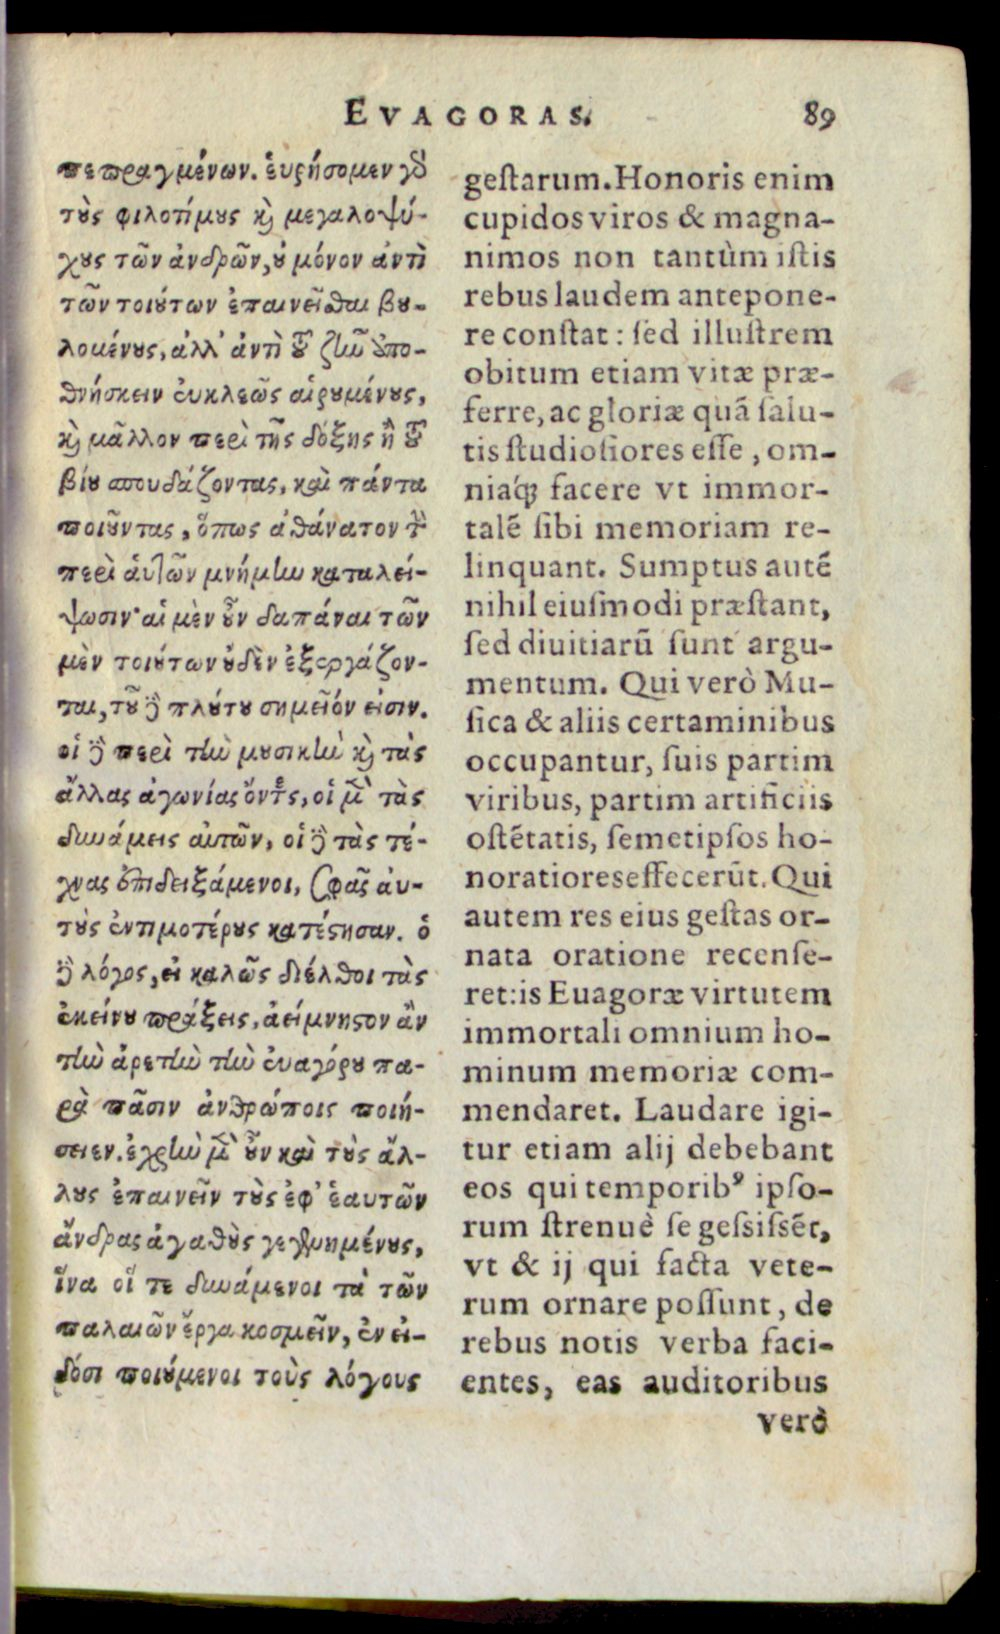 EVAGORAS. 89
πεπραγμένων. εὑρήσομεν γὸ
τοὺς φιλοτίμους κὶ μεγαλοψύ-
χους τῶν ἀνδρῶν, οὐ μόνον ἀντὶ
τῶν τοιούτων ἐπαινεῖσθαι βου-
λομένους, ἀλλ' ἀντὶ τοῦ ζῆν ἀπο-
θνήσκειν εὐκλεῶς αἱρουμένους,
κὶ μᾶλλον περὶ τῆς δόξης ἢ τοῦ
βίου σπουδάζοντας, καὶ πάντα
ποιοῦντας, ὅπως ἀθάνατον τὴν
περὶ αὑτῶν μνήμην καταλεί-
ψωσιν· αἱ μὲν οὖν δαπάναι τῶν
μὲν τοιούτων οὐδὲν ἐξεργάζον-
ται, τοῦ δὲ πλούτου σημεῖόν εἰσιν.
οἱ δὲ περὶ τὴν μουσικὴν κὶ τὰς
ἄλλας ἀγωνίας ὄντες, οἱ μὲν τὰς
δυνάμεις αὑτῶν, οἱ δὲ τὰς τέ-
χνας ἐπιδειξάμενοι, σφᾶς αὐ-
τοὺς ἐντιμοτέρους κατέστησαν. ὁ
δὲ λόγος, εἰ καλῶς διέλθοι τὰς
ἐκείνου πράξεις, ἀείμνηστον ἂν
τὴν ἀρετὴν τὴν εὐαγόρου πα-
ρὰ πᾶσιν ἀνθρώποις ποιή-
σειεν. ἐχρῆν μὲν οὖν καὶ τοὺς ἄλ-
λους ἐπαινεῖν τοὺς ἐφ' ἑαυτῶν
ἄνδρας ἀγαθοὺς γεγενημένους,
ἵνα οἵ τε δυνάμενοι τὰ τῶν
παλαιῶν ἔργα κοσμεῖν, ἐν εἰ-
δόσι ποιούμενοι τοὺς λόγους
gestarum. Honoris enim
cupidos viros & magna-
nimos non tantùm istis
rebus laudem antepone-
re constat: sed illustrem
obitum etiam vitæ præ-
ferre, ac gloriæ quã salu-
tis studiosiores esse, om-
niaq́ꝫ facere vt immor-
talẽ sibi memoriam re-
linquant. Sumptus autẽ
nihil eiusmodi præstant,
sed diuitiarũ sunt argu-
mentum. Qui verò Mu-
sica & aliis certaminibus
occupantur, suis partim
viribus, partim artificiis
ostẽtatis, semetipsos ho-
noratiores effecerũt. Qui
autem res eius gestas or-
nata oratione recense-
ret: is Euagoræ virtutem
immortali omnium ho-
minum memoriæ com-
mendaret. Laudare igi-
tur etiam alij debebant
eos qui temporibꝰ ipso-
rum strenuè se gessissẽt,
vt & ij qui facta vete-
rum ornare possunt, de
rebus notis verba faci-
entes, eas auditoribus
verò